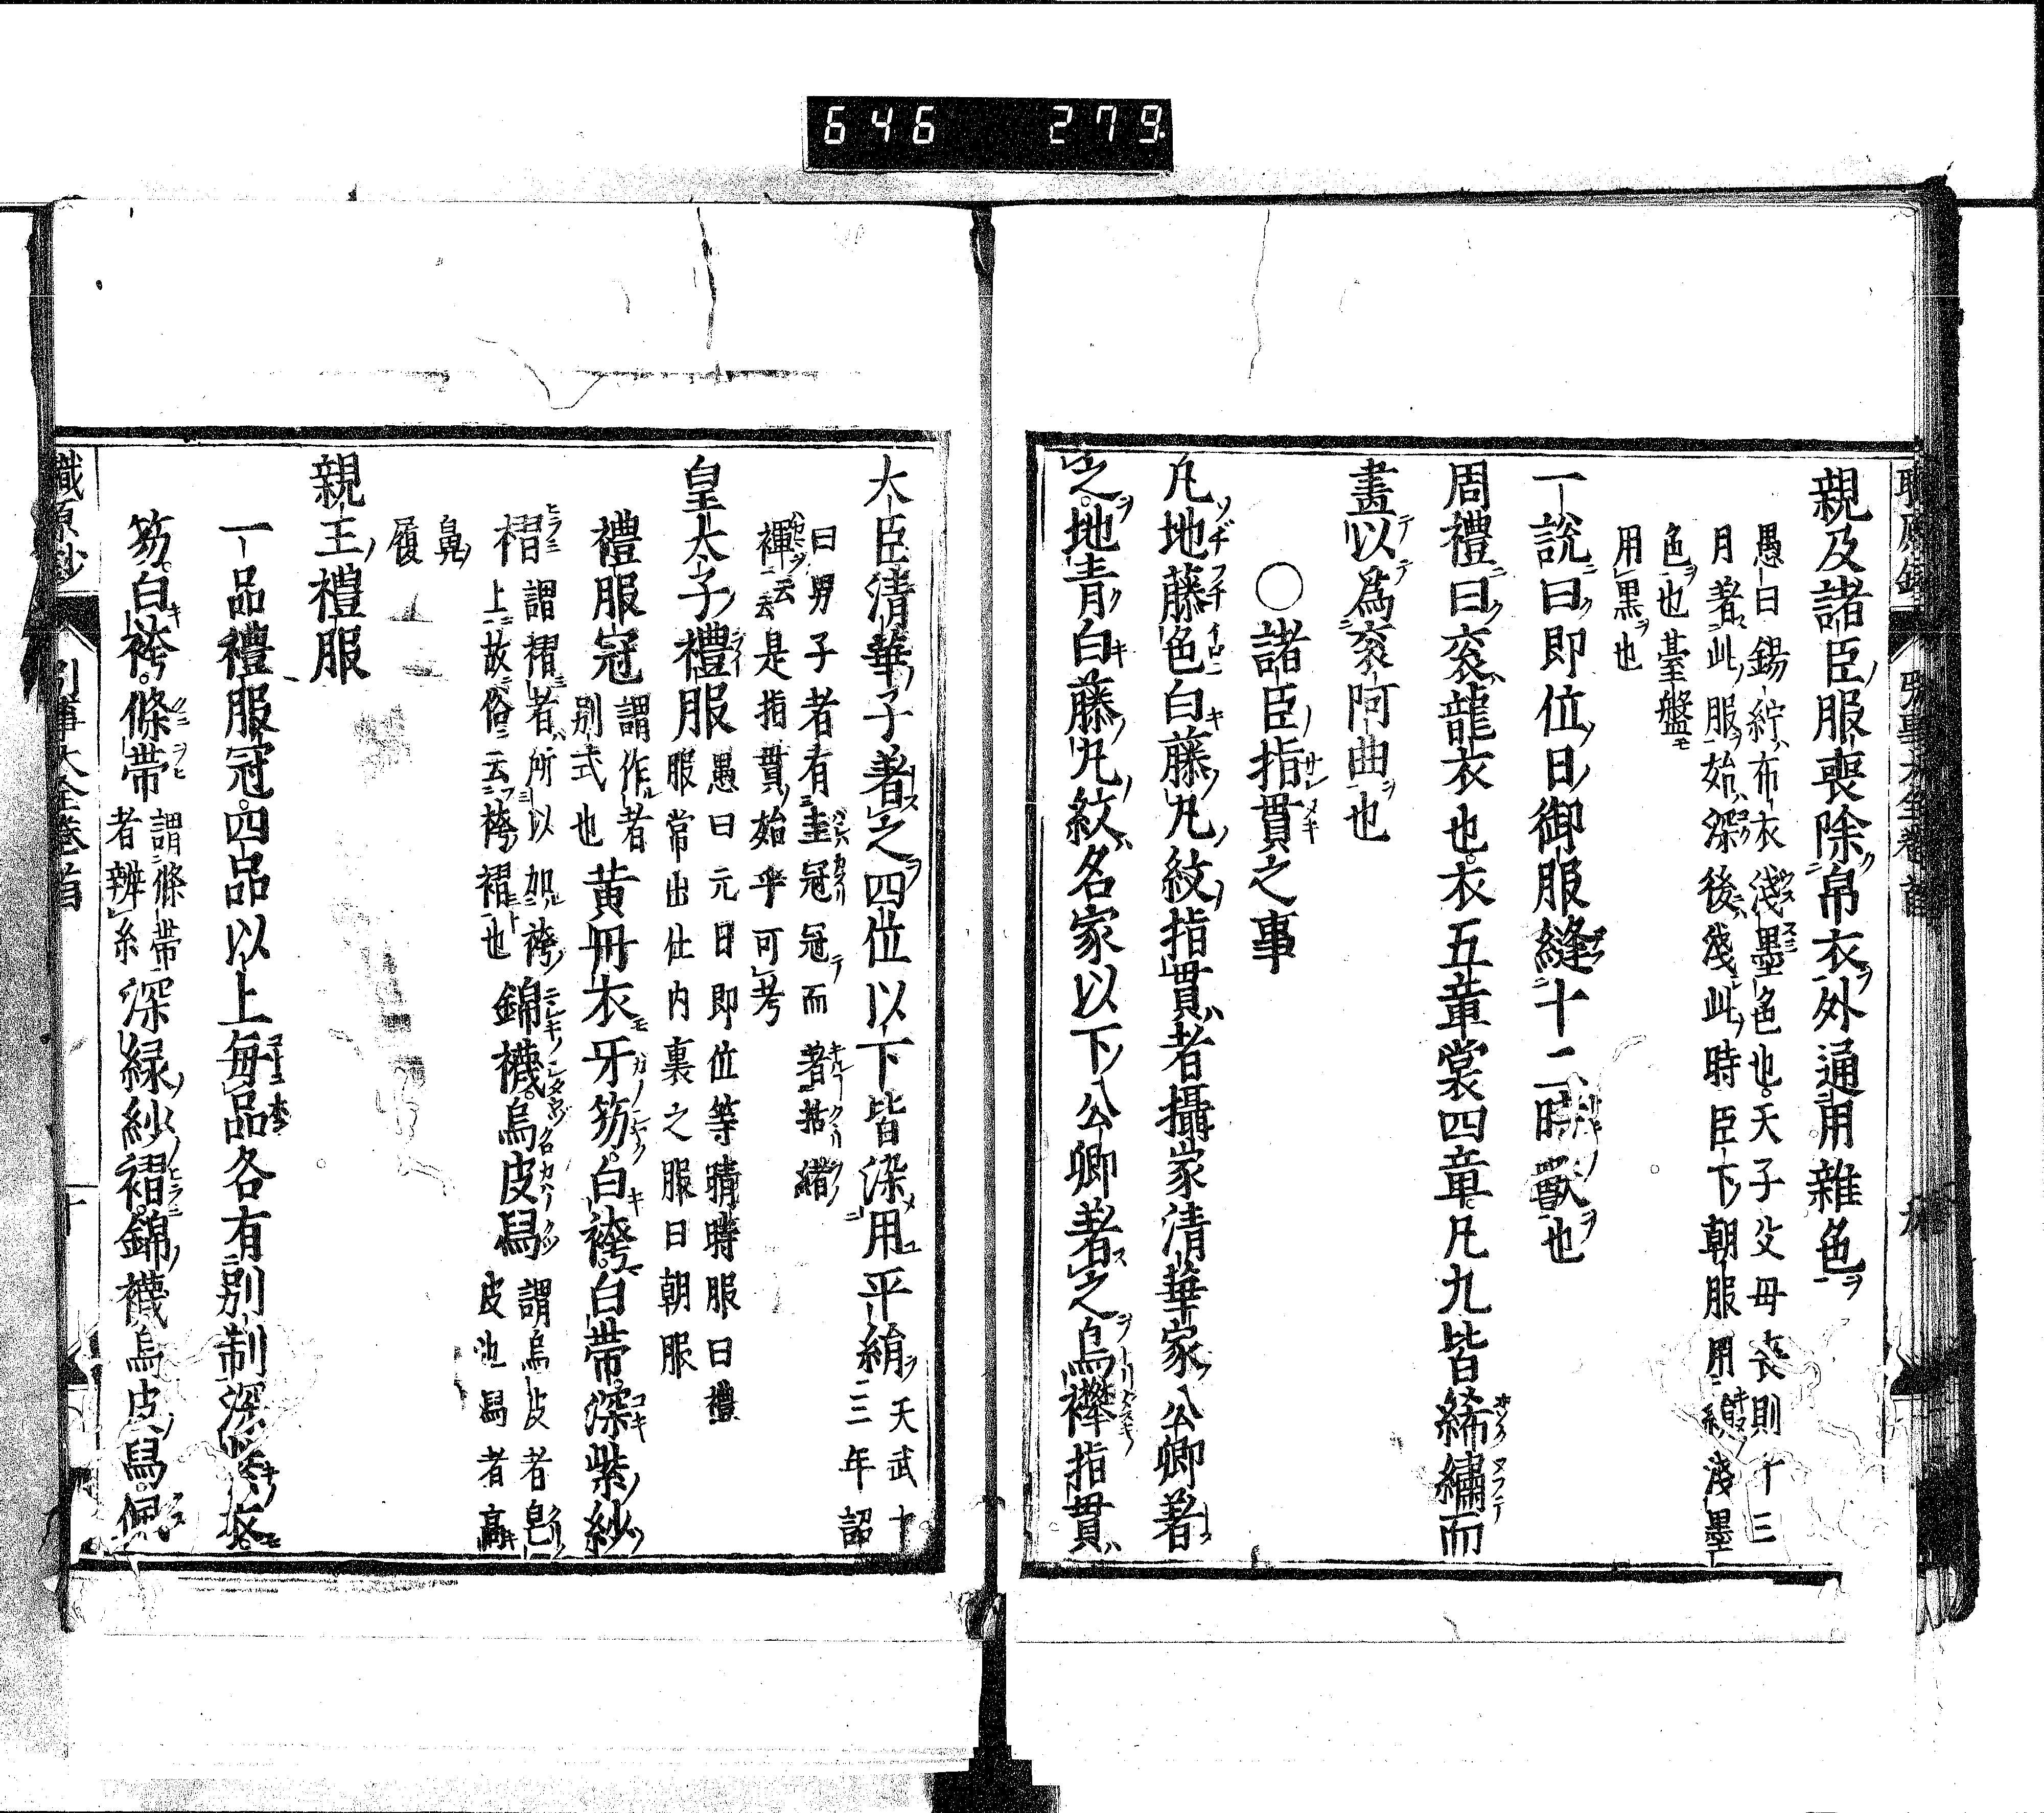 646 279
親及諸臣服喪除帛衣外通用雜色
愚曰錫紵布衣淺墨色也天子父母喪則十三
月著此服始深後淺此時臣下朝服用縹淺墨
色也臺盤
用黒也
一説曰即位日御服縫十二時獸也
周禮曰袞龍衣也衣五章裳四章凡九皆絺繡而
畫以爲袞阿曲也
○諸臣指貫之事
凡地藤色白藤丸紋指貫者攝家清華家公卿著
之地青白藤丸紋名家以下公卿著之烏襷指貫
大臣清華子著之四位以下皆染用平絹
天武十
三年詔
曰男子者有圭冠冠而著括緒
褌云云是指貫始乎可考
皇太子禮服
愚曰元日即位等晴時服曰禮
服常出仕内裏之服曰朝服
禮服冠
謂作者
別式也
黄丹衣牙笏白袴白帶深紫紗
褶
謂褶者所以加袴
上故俗云袴褶也
錦襪烏皮舄
謂烏皮者皂
皮也舄者高
鼻
履
親王禮服
一品禮服冠四品以上毎品各有別制深紫衣
笏白袴條帶
謂條帶
者辨糸
深緑紗褶錦襪烏皮舄佩
職原鈔 引事大全卷首 十